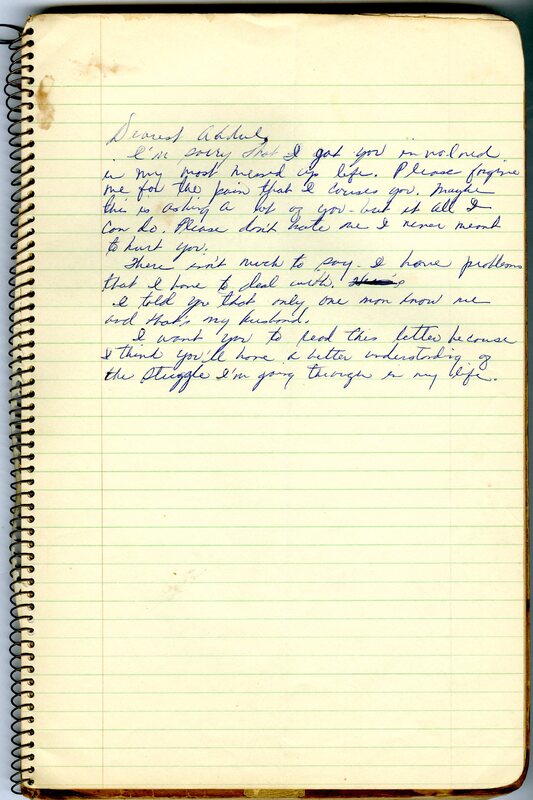 Dearest Abdul,
I'm sorry that I got you in volved
in my most messed up life. Please forgive
me for the pain that I couses you. Maybe
this is asking a lot of you - but it all I
can do. Please don't hate me I never meant
to hurt you.
There isn't much to say - I have problems
that I have to deal with.
I told you that only one man know me
and that's my husband.
I want you to read this letter because
I think you'll have a better understanding of
the struggle I'm going through in my life.